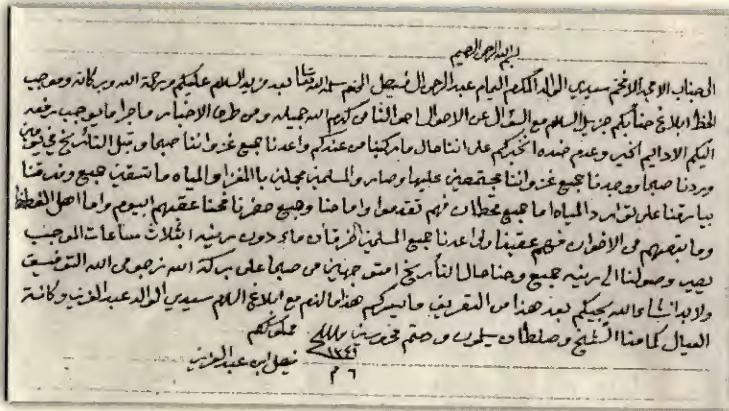 بسم الله الرحمن الرحيم
الى جناب الامجد الافخم سيدي الوالد المكرم الامام عبد الرحمن ال فيصل المحترم سلمه الله تعالى بعد مزيد السلام عليكم ورحمة الله وبركاته وموجب
الخط ابلاغ جنابكم جزيل السلام مع السؤال عن الاحوال احوالنا من كرم الله جميله ومن طرف الاخبار ماجرا مايوجب رفعه
اليكم الادايم الخير وعدم ضده اخبركم على اننا حال ماركبنا من عندكم واعدنا جميع غزواننا صبحا وقبل التأريخ في يومين
وردنا صبحا ووجدنا جميع غزواننا مجتمعين عليها وصار والمسلمين بالغزا والمياه جميع
بيارقنا على المياه اما جميع قحطان فهم تقدموا واما حنا وجميع حضرنا عقبهم اليوم واما اهل
وما من الاخوان فهم عقبنا واعدنا جميع المسلمين ماء دون رنيه الثلاث ساعات الموجب
يصير وصولنا الى رنيه جميع وحنا حال التأريخ متوجهين من صبحا على بركة الله نرجو من الله التوفيق
ولابد انشاء الله يجيكم بعد هذا من التعريف مايسركم هذا مالزم مع ابلاغ السلام سيدي الوالد عبد العزيز وكافة
العيال كما منا الشيخ وسلطان يسلمون ودمتم محروسين والسلام
مملوككم
فيصل ابن عبد العزيز
١٣٤٢
٦ م